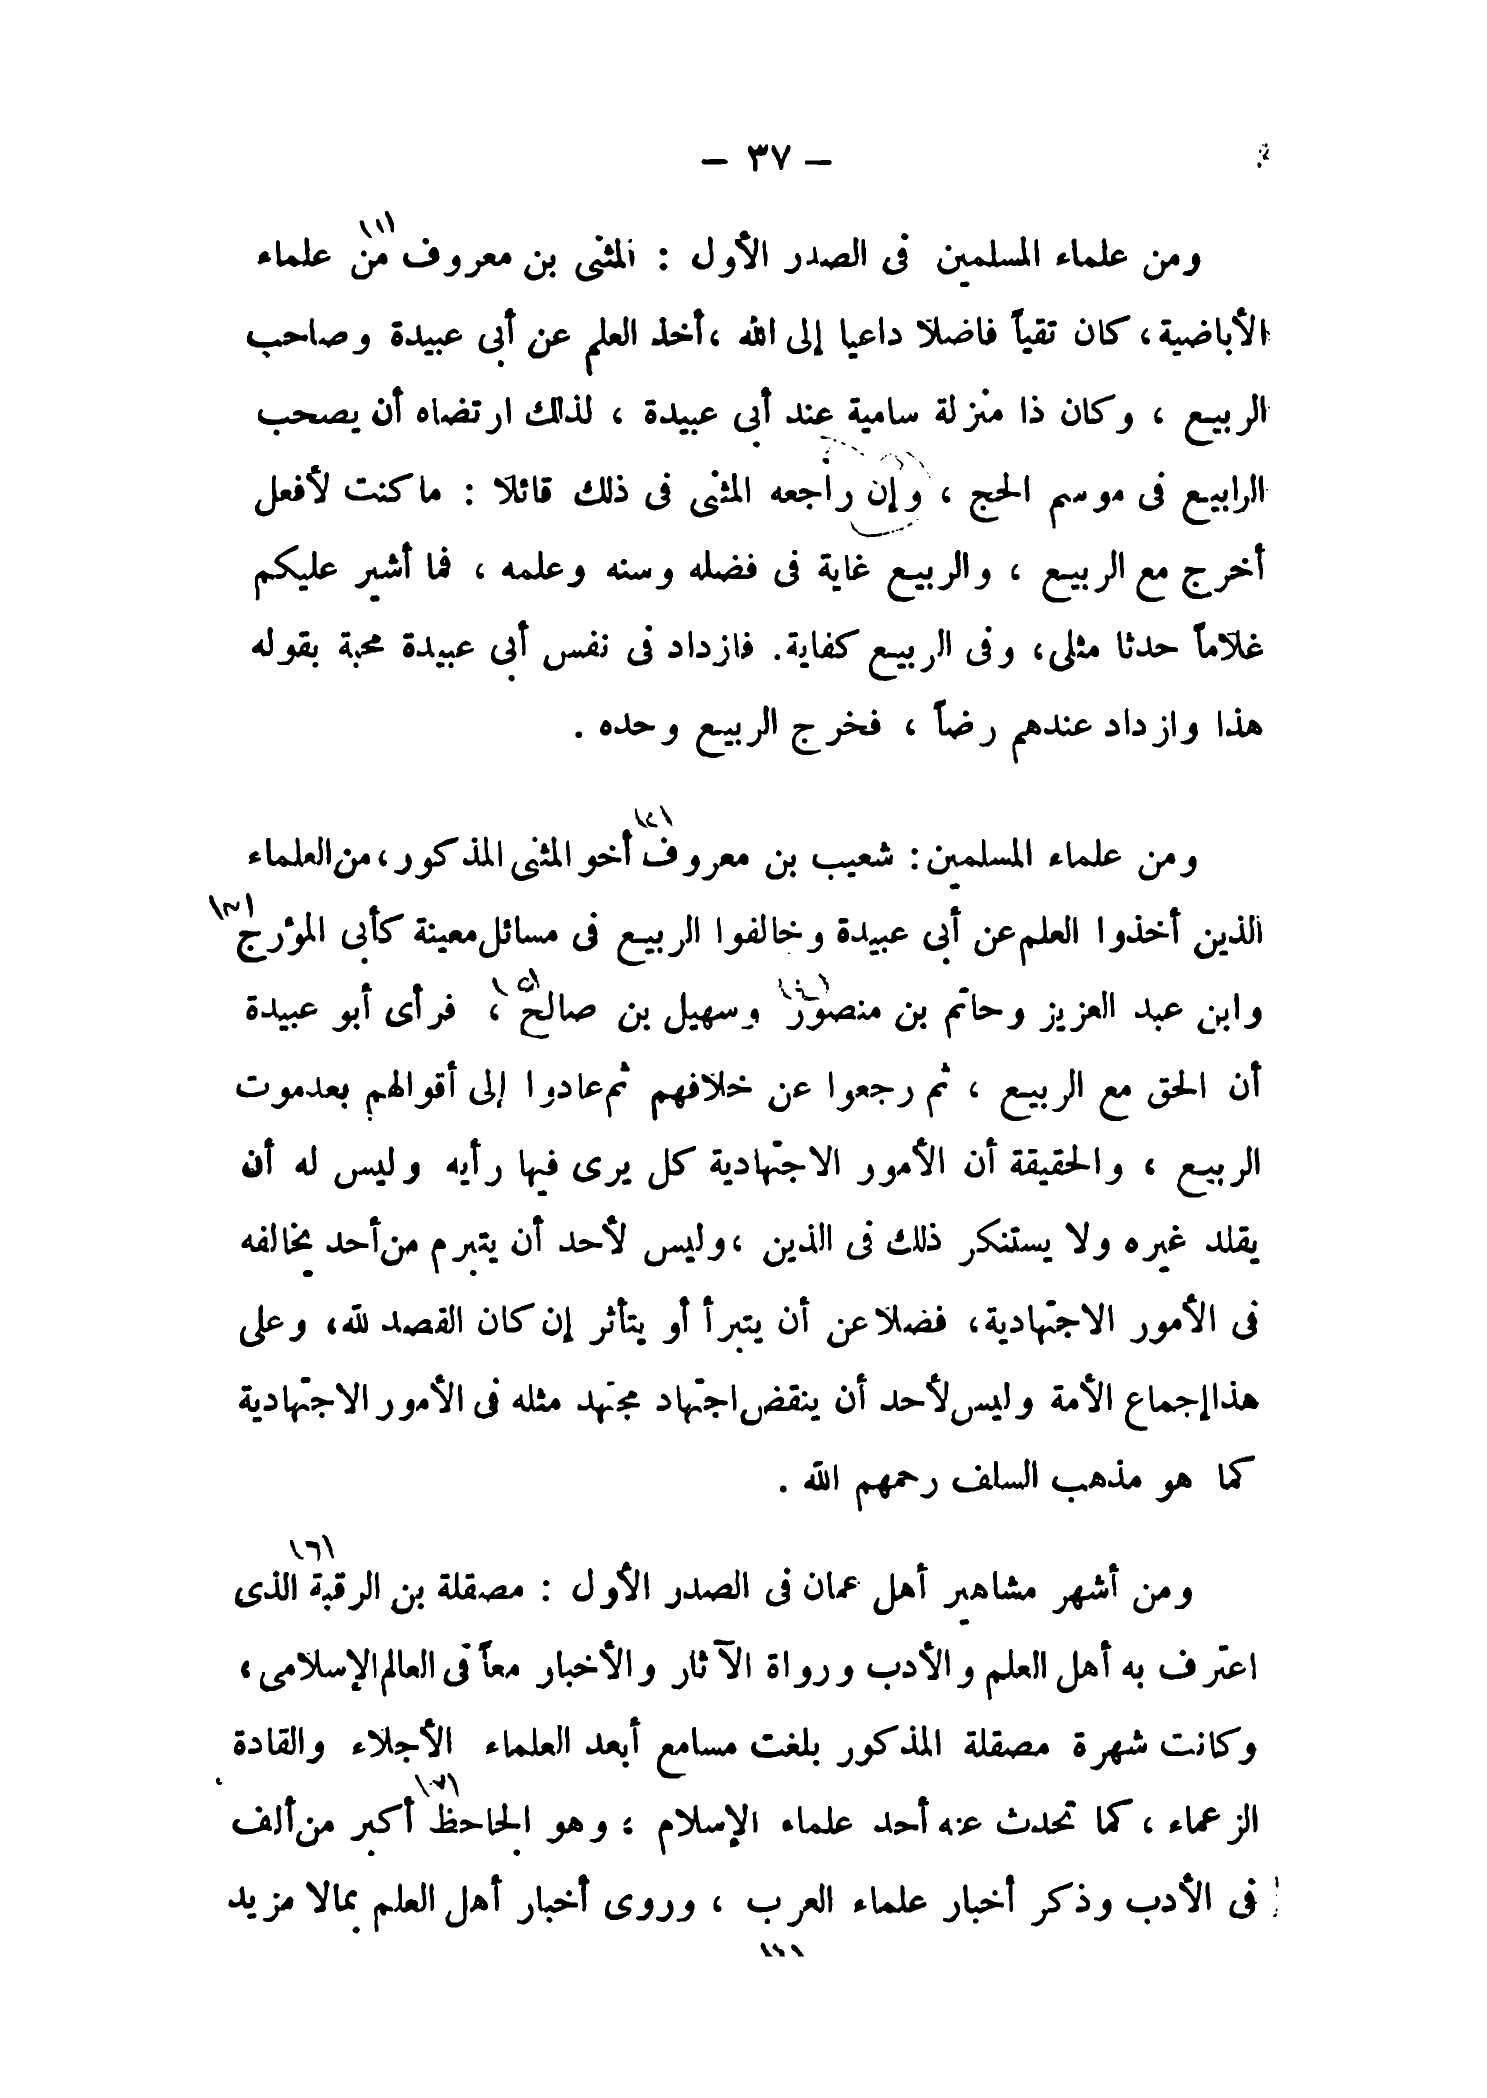 — ٣٧ —
ومن علماء المسلمين فى الصدر الأول : المثنى بن معروف (١) من علماء
الأباضية ، كان تقياً فاضلا داعيا إلى الله ، أخذ العلم عن أبى عبيدة وصاحب
الربيع ، وكان ذا منزلة سامية عند أبى عبيدة ، لذلك ارتضاه أن يصحب
الرابيع فى موسم الحج ، وإن راجعه المثنى فى ذلك قائلا : ما كنت لأفعل
أخرج مع الربيع ، والربيع غاية فى فضله وسنه وعلمه ، فما أشير عليكم
غلاماً حدثا مثلى ، وفى الربيع كفاية . فازداد فى نفس أبى عبيدة محبة بقوله
هذا وازداد عندهم رضاً ، فخرج الربيع وحده .
ومن علماء المسلمين : شعيب بن معروف (٢) أخو المثنى المذكور ، من العلماء
الذين أخذوا العلم عن أبى عبيدة وخالفوا الربيع فى مسائل معينة كأبى المؤرج (٣)
وابن عبد العزيز وحاتم بن منصور (٤) وسهيل بن صالح (٥) ، فرأى أبو عبيدة
أن الحق مع الربيع ، ثم رجعوا عن خلافهم ثم عادوا إلى أقوالهم بعد موت
الربيع ، والحقيقة أن الأمور الاجتهادية كل يرى فيها رأيه وليس له أن
يقلد غيره ولا يستنكر ذلك فى الذين ، وليس لأحد أن يتبرم من أحد يخالفه
فى الأمور الاجتهادية ، فضلا عن أن يتبرأ أو يتأثر إن كان القصد لله ، وعلى
هذا إجماع الأمة وليس لأحد أن ينقض اجتهاد مجتهد مثله فى الأمور الاجتهادية
كما هو مذهب السلف رحمهم الله .
ومن أشهر مشاهير أهل عمان فى الصدر الأول : مصقلة بن الرقبة (٦) الذى
اعترف به أهل العلم والأدب ورواة الآثار والأخبار معاً فى العالم الإسلامى ،
وكانت شهرة مصقلة المذكور بلغت مسامع أبعد العلماء الأجلاء والقادة
الزعماء ، كما تحدث عنه أحد علماء الإسلام ؛ وهو الجاحظ (٧) أكبر من ألف
فى الأدب وذكر أخبار علماء العرب ، وروى أخبار أهل العلم بمالا مزيد